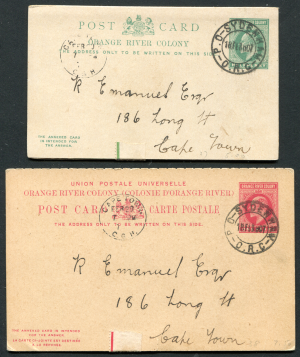 POST CARD
ORANGE RIVER COLONY
THE ADDRESS ONLY TO BE WRITTEN ON THIS SIDE
P.O. SYDENHAM
O.R.C.
R Emanuel Esqr
186 Long St
Cape Town
THE ANSWER CARD
IS INTENDED FOR
THE ANSWER.
UNION POSTALE UNIVERSELLE
ORANGE RIVER COLONY (COLONIE D'ORANGE RIVER)
POST CARD CARTE POSTALE
THE ADDRESS ONLY TO BE WRITTEN ON THIS SIDE.
CAPE TOWN
P.O. SYDENHAM
O.R.C.
R Emanuel Esqr
186 Long St
Cape Town
THE ANNEXED CARD IS INTENDED
FOR THE ANSWER
LA CARTE CI-JOINTE EST DESTINÉE
À LA RÉPONSE